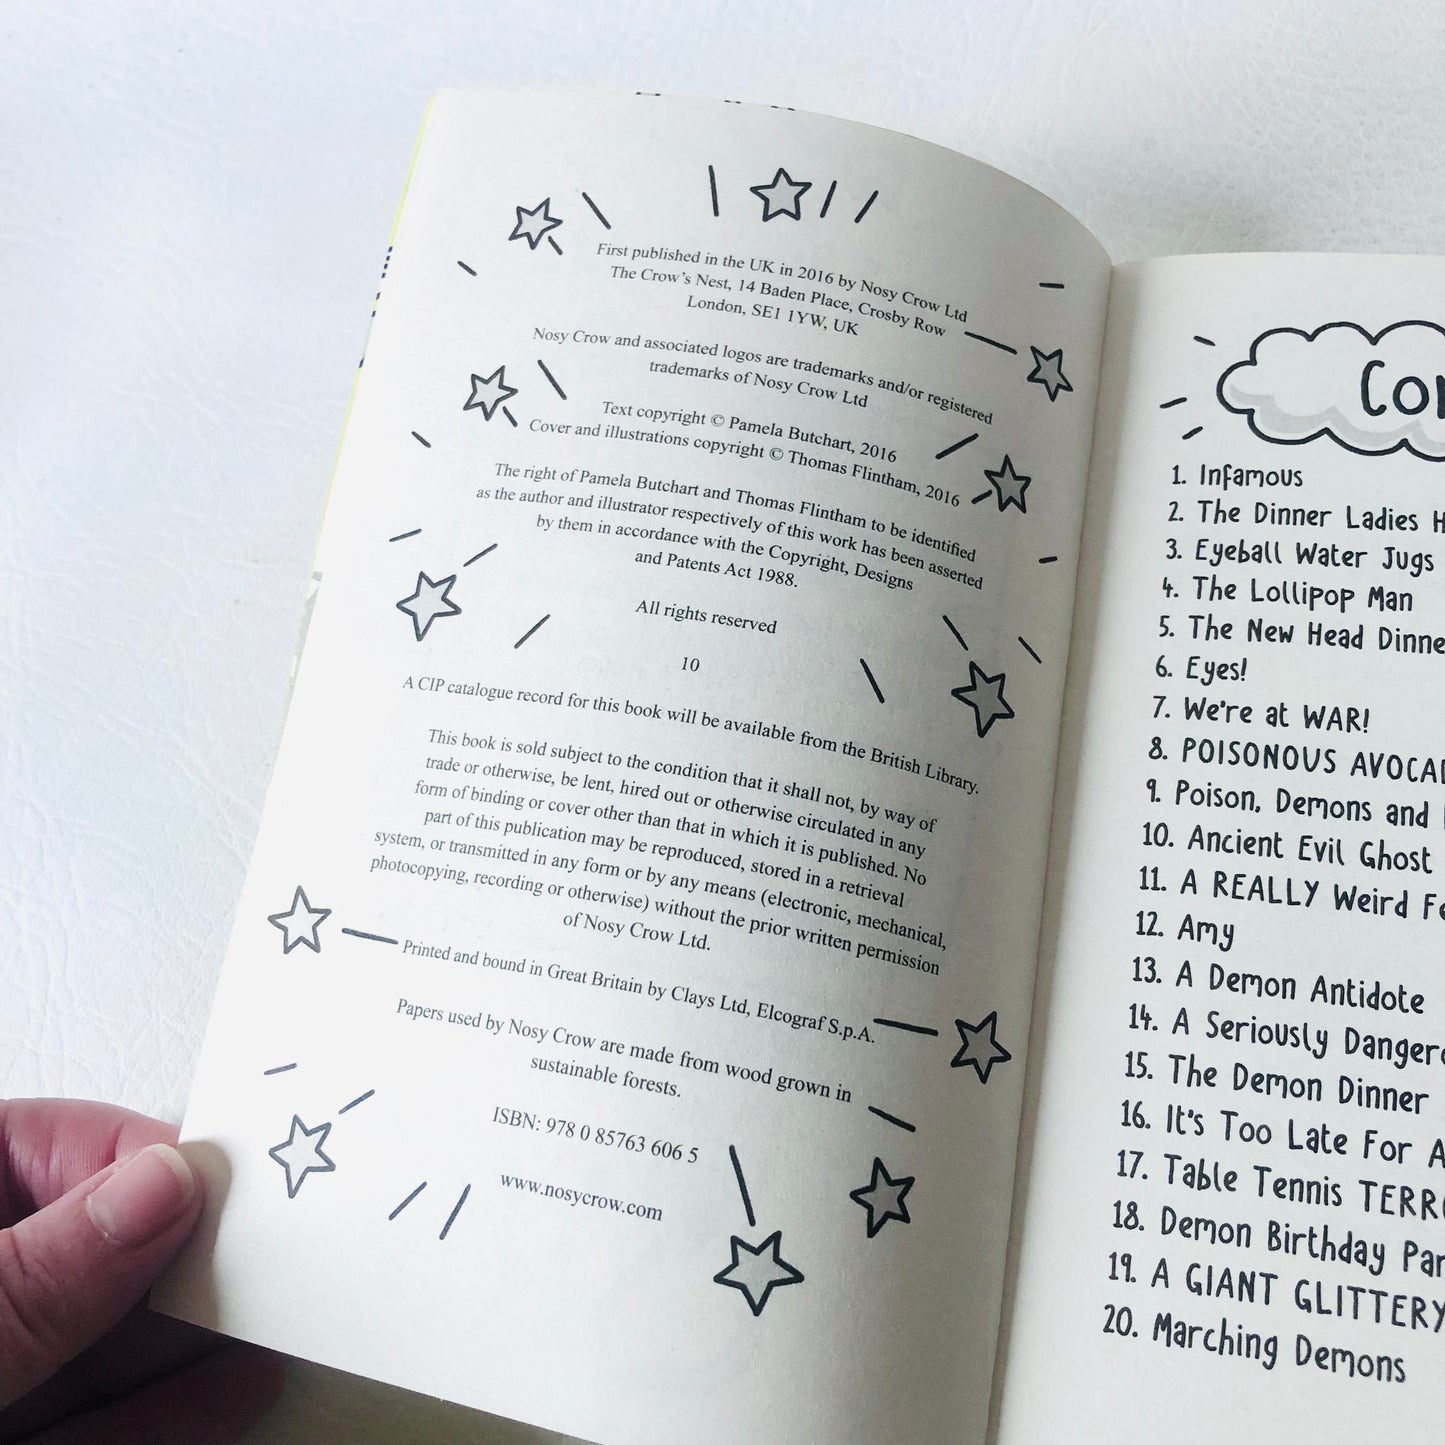 First published in the UK in 2016 by Nosy Crow Ltd
The Crow's Nest, 14 Baden Place, Crosby Row
London, SE1 1YW, UK
Nosy Crow and associated logos are trademarks and/or registered
trademarks of Nosy Crow Ltd
Text copyright © Pamela Butchart, 2016
Cover and illustrations copyright © Thomas Flintham, 2016
The right of Pamela Butchart and Thomas Flintham to be identified
as the author and illustrator respectively of this work has been asserted
by them in accordance with the Copyright, Designs
and Patents Act 1988.
All rights reserved
10
A CIP catalogue record for this book will be available from the British Library.
This book is sold subject to the condition that it shall not, by way of
trade or otherwise, be lent, hired out or otherwise circulated in any
form of binding or cover other than that in which it is published. No
part of this publication may be reproduced, stored in a retrieval
system, or transmitted in any form or by any means (electronic, mechanical,
photocopying, recording or otherwise) without the prior written permission
of Nosy Crow Ltd.
Printed and bound in Great Britain by Clays Ltd, Elcograf S.p.A.
Papers used by Nosy Crow are made from wood grown in
sustainable forests.
ISBN: 978 0 85763 606 5
www.nosycrow.com
1. Infamous
2. The Dinner Ladies
3. Eyeball Water Jugs
4. The Lollipop Man
5. The New Head
6. Eyes!
7. We're at WAR!
8. POISONOUS
9. Poison, Demons and
10. Ancient Evil Ghost
11. A REALLY Weird
12. Amy
13. A Demon Antidote
14. A Seriously
15. The Demon Dinner
16. It's Too Late For
17. Table Tennis
18. Demon Birthday
19. A GIANT GLITTERY
20. Marching Demons